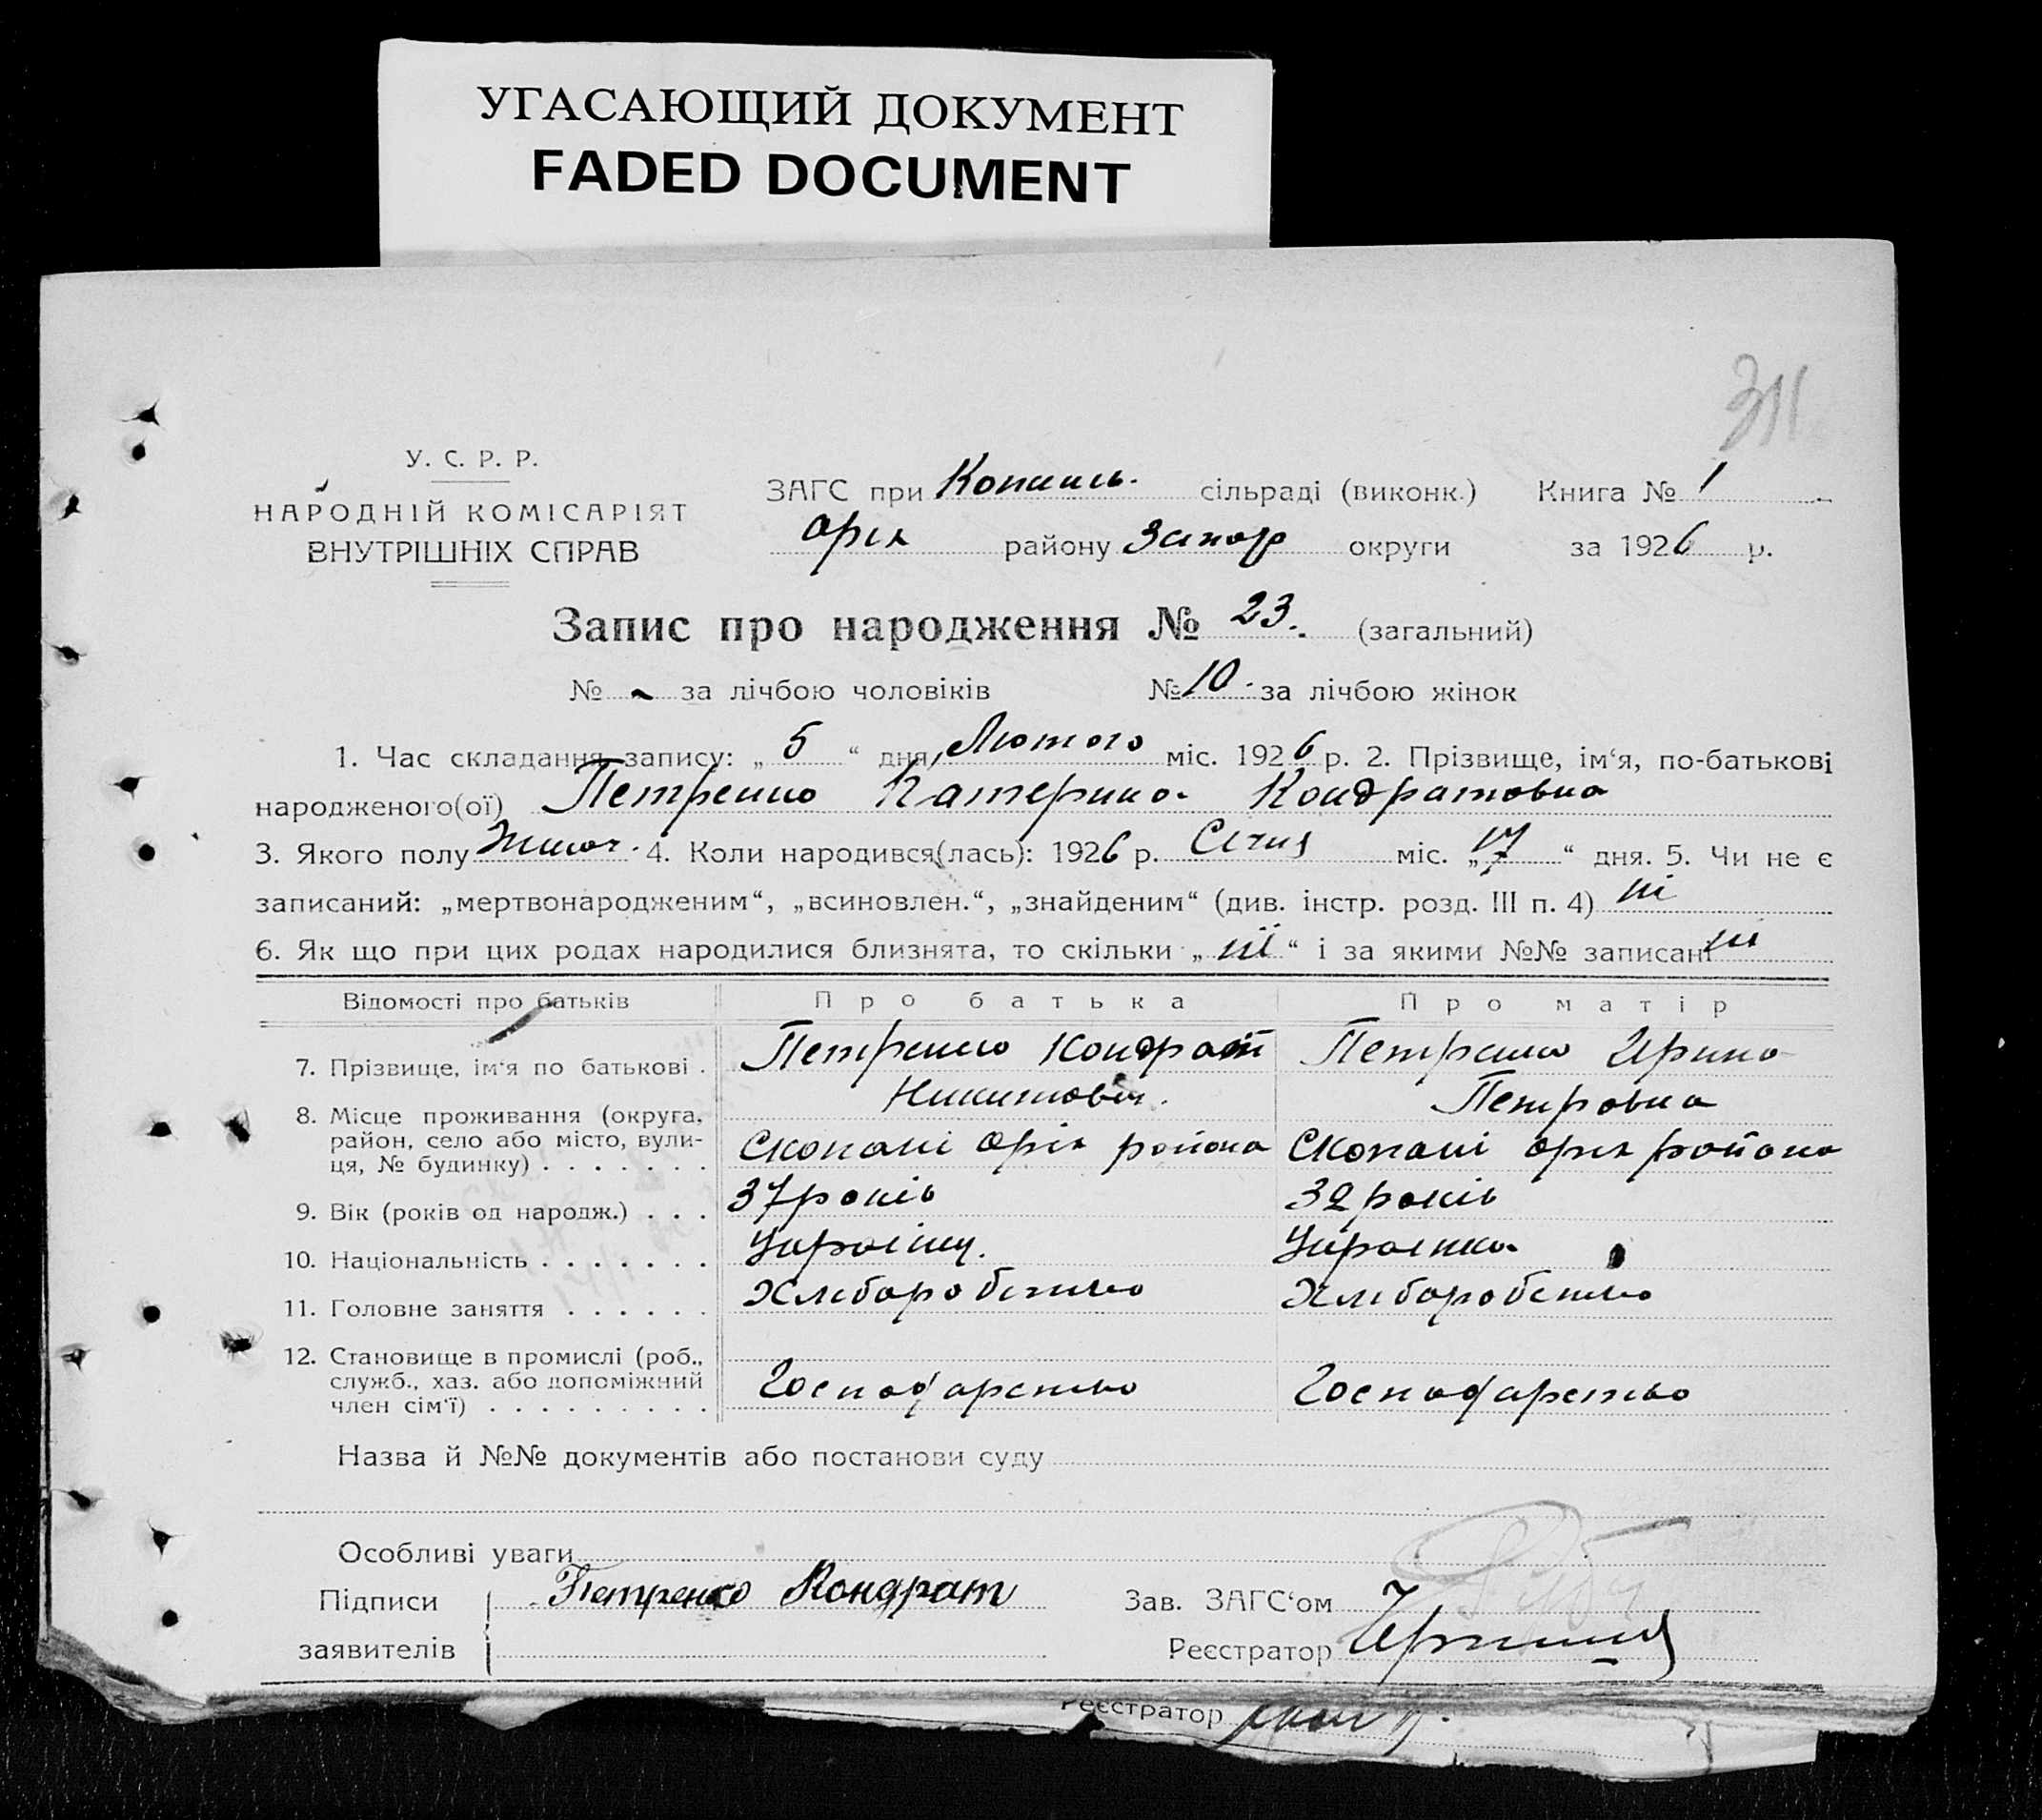 УГАСАЮЩИЙ ДОКУМЕНТ
FADED DOCUMENT
311
У. С. Р. Р.
НАРОДНІЙ КОМІСАРІЯТ
ВНУТРІШНІХ СПРАВ
ЗАГС при Копань. сільраді (виконк.) Книга № 1
Оріх району Запор округи за 1926 р.
Запис про народження № 23. (загальний)
№ - за лічбою чоловіків № 10. за лічбою жінок
1. Час складання запису: „ 5 “ дня Лютого міс. 1926 р. 2. Прізвище, ім‘я, по-батькові
народженого(ої) Петренко Катерина Кондратовна
3. Якого полу Жиноч. 4. Коли народився(лась): 1926 р. Січня міс. „ 17 “ дня. 5. Чи не є
записаний: „мертвонародженим“, „всиновлен.“, „знайденим“ (див. інстр. розд. III п. 4) ні
6. Як що при цих родах народилися близнята, то скільки „ ні “ і за якими №№ записані ні
Відомості про батьків Про батька Про матір
7. Прізвище, ім‘я по батькові . Петренко Кондрат Петренко Ирина
Никитович. Петровна
8. Місце проживання (округа,
район, село або місто, вули-
ця, № будинку) . . . . . . . Скопані Оріх района Скопані Оріх района
9. Вік (років од народж.) . . . 37 років 32 років
10. Національність . . . . . . . Україн̄ц. Українка
11. Головне заняття . . . . . . Хліборобство Хліборобство
12. Становище в промислі (роб.,
служб., хаз. або допоміжний
член сім‘ї) . . . . . . . . . Господарство Господарство
Назва й №№ документів або постанови суду
Особливі уваги
Підписи Петренко Кондрат Зав. ЗАГС‘ом
заявителів Реєстратор
Реєстратор